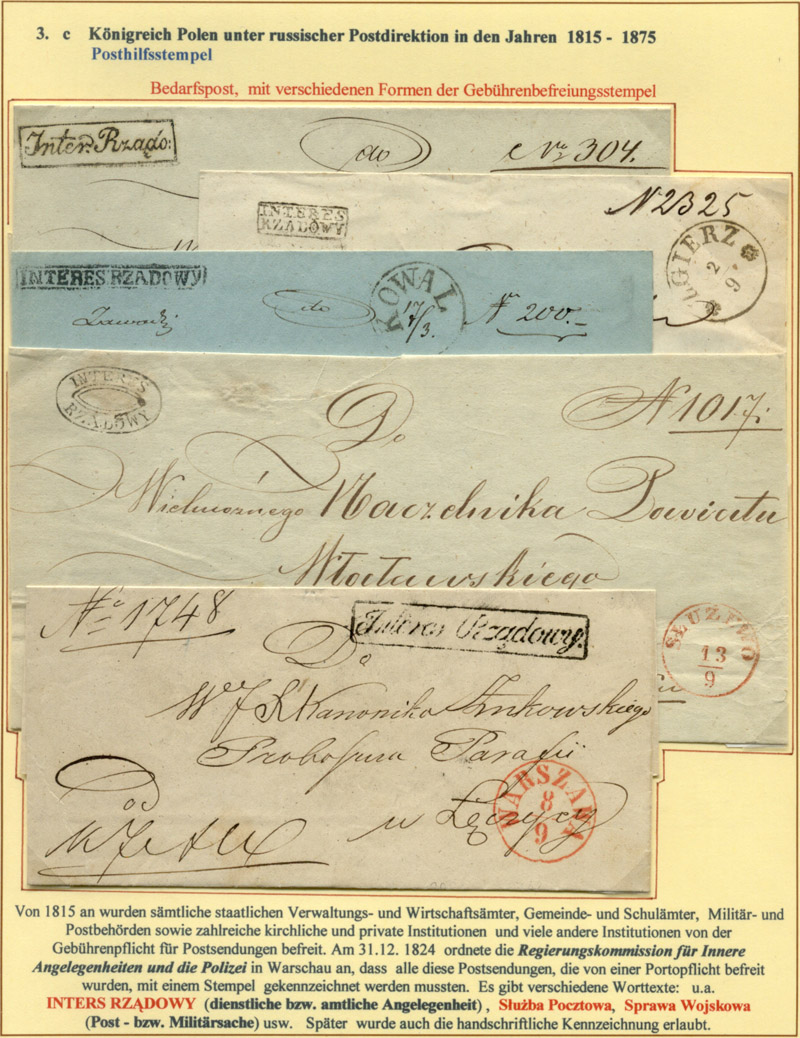 3. c Königreich Polen unter russischer Postdirektion in den Jahren 1815 - 1875
Posthilfsstempel
Bedarfspost, mit verschiedenen Formen der Gebührenbefreiungsstempel
Inter. Rządo:
do
No 304.
INTERES
RZĄDOWY
N 2325
ZGIERZ
2
9
INTERES RZADOWY
do
KOWAL
17/3.
N 200.
INTERES
RZĄDOWY
Do
N 1017.
Wielmożnego Naczelnika Powiatu
Włocławskiego
SŁUŻEWO
13
9
No 1748
Interes Rządowy.
Do
Kanonika
Proboszcza Parafii
WARSZAWA
8
9
od
w Łęczycy
Von 1815 an wurden sämtliche staatlichen Verwaltungs- und Wirtschaftsämter, Gemeinde- und Schulämter, Militär- und
Postbehörden sowie zahlreiche kirchliche und private Institutionen und viele andere Institutionen von der
Gebührenpflicht für Postsendungen befreit. Am 31.12. 1824 ordnete die Regierungskommission für Innere
Angelegenheiten und die Polizei in Warschau an, dass alle diese Postsendungen, die von einer Portopflicht befreit
wurden, mit einem Stempel gekennzeichnet werden mussten. Es gibt verschiedene Worttexte: u.a.
INTERS RZĄDOWY (dienstliche bzw. amtliche Angelegenheit) , Służba Pocztowa, Sprawa Wojskowa
(Post - bzw. Militärsache) usw. Später wurde auch die handschriftliche Kennzeichnung erlaubt.